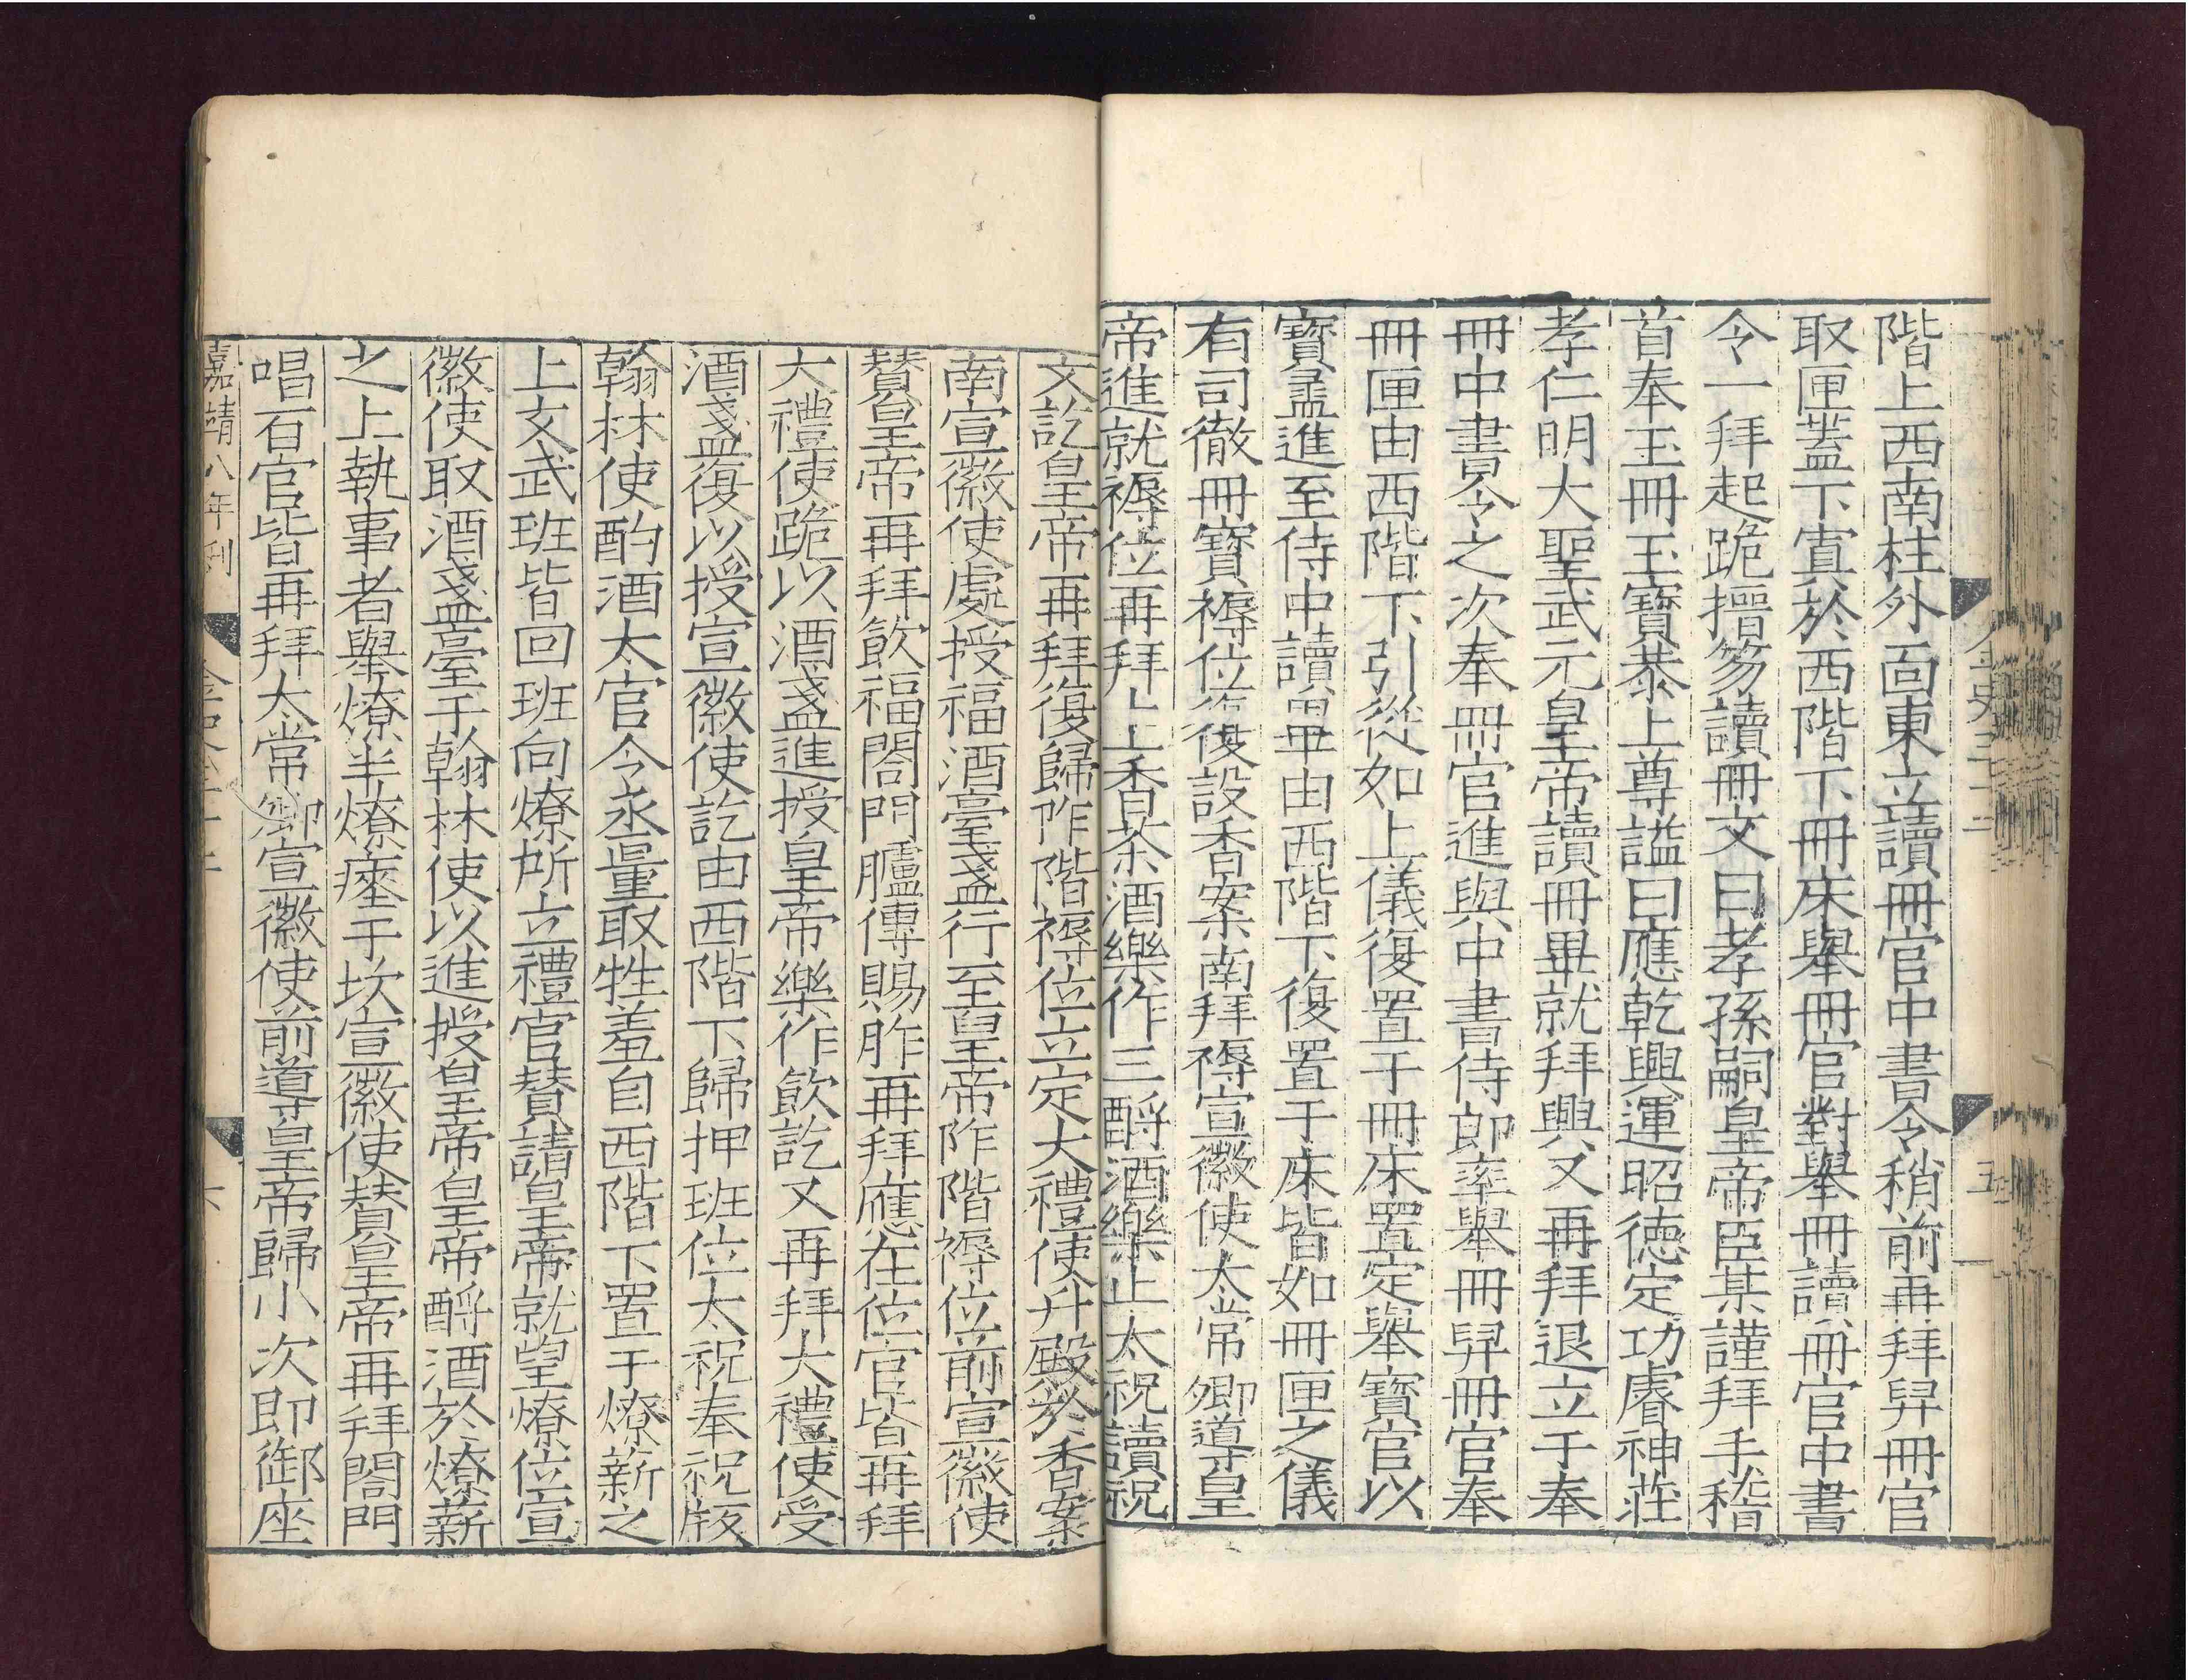 階上西南柱外面東立讀冊官中書令稍前再拜舁冊官
取匣蓋下寘於西階下冊床舉冊官對舉冊讀冊官中書
令一拜起跪搢笏讀冊文曰孝孫嗣皇帝臣某謹拜手稽
首奉玉冊玉寶恭上尊謚曰應乾興運昭德定功睿神莊
孝仁明大聖武元皇帝讀冊畢就拜興又再拜退立于奉
冊中書令之次奉冊官進與中書侍郎率舉冊舁冊官奉
冊匣由西階下引從如上儀復置于冊床置定舉寶官以
寶盝進至侍中讀畢由西階下復置于床皆如冊匣之儀
有司徹冊寶褥位復設香案南拜褥宣徽使太常卿導皇
帝進就褥位再拜上香茶酒樂作三酹酒樂止太祝讀祝
文訖皇帝再拜復歸阼階褥位立定大禮使升殿於香案
南宣徽使處授福酒臺盞行至皇帝阼階褥位前宣徽使
贊皇帝再拜飲福閤門臚傳賜胙再拜應在位官皆再拜
大禮使跪以酒盞進授皇帝樂作飲訖又再拜大禮使受
酒盞復以授宣徽使訖由西階下歸押班位太祝奉祝版
翰林使酌酒太官令丞量取牲羞自西階下置于燎薪之
上文武班皆回班向燎所立禮官贊請皇帝就望燎位宣
徽使取酒盞臺于翰林使以進授皇帝皇帝酹酒於燎薪
之上執事者舉燎半燎瘞于坎宣徽使贊皇帝再拜閤門
唱百官皆再拜太常卿宣徽使前導皇帝歸小次即御座
嘉靖八年刊
六